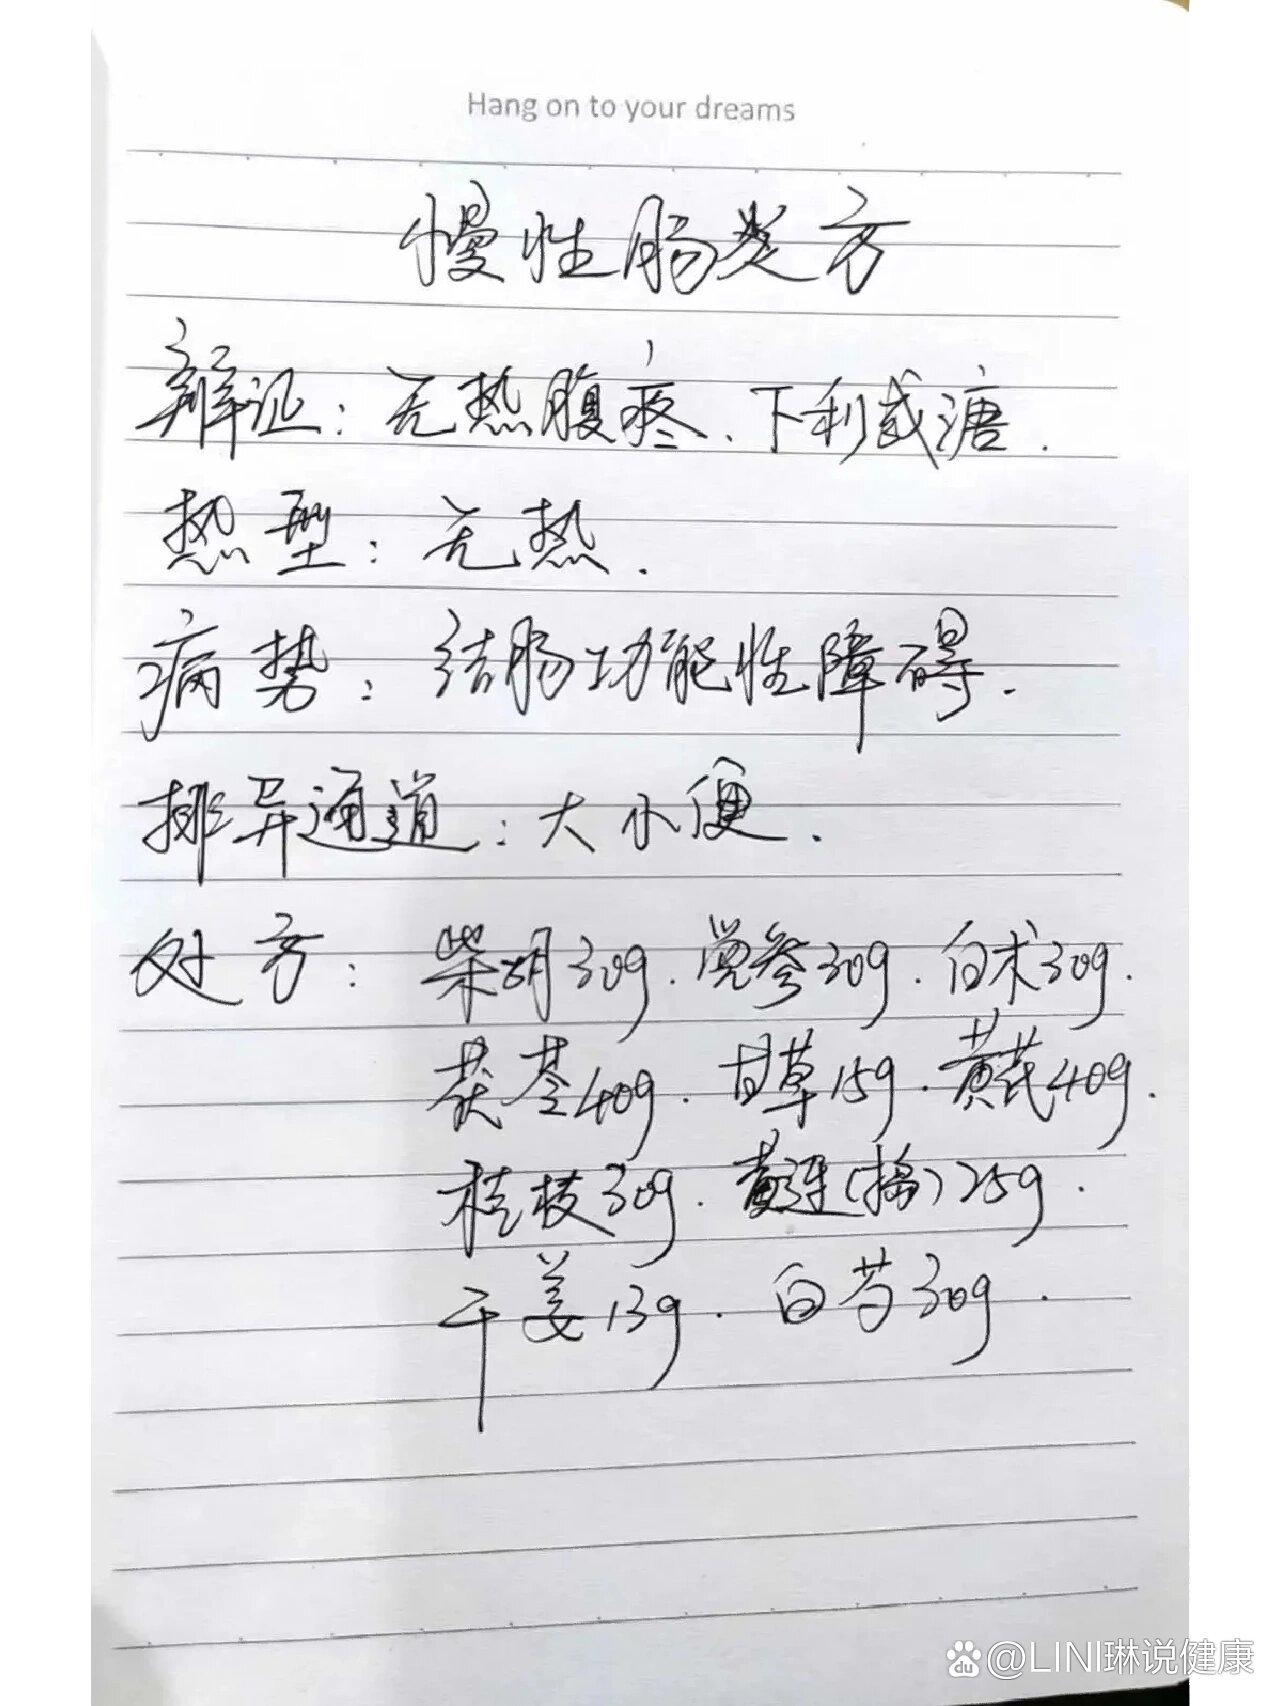 Hang on to your dreams
慢性肠炎方
辨证：无热腹疼、下利或溏.
热型：无热.
病势：结肠功能性障碍.
排异通道：大小便.
处方：柴胡30g. 党参30g. 白术30g.
茯苓40g. 甘草15g. 黄芪40g.
桂枝30g. 黄连(捣)25g.
干姜13g. 白芍30g.
Baidu @LINI琳说健康